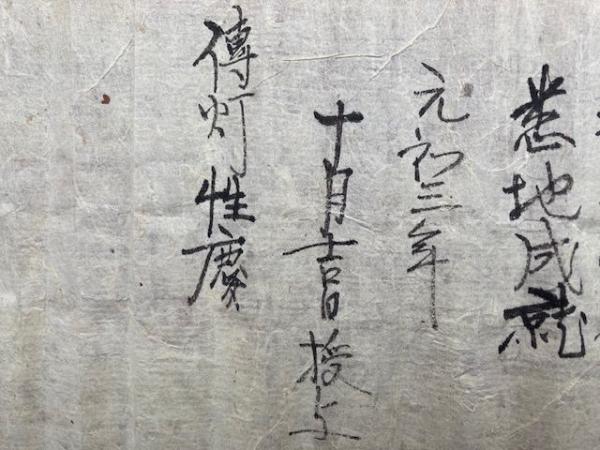 悉地成就
元和三年
十月吉日授与
傳灯性慶